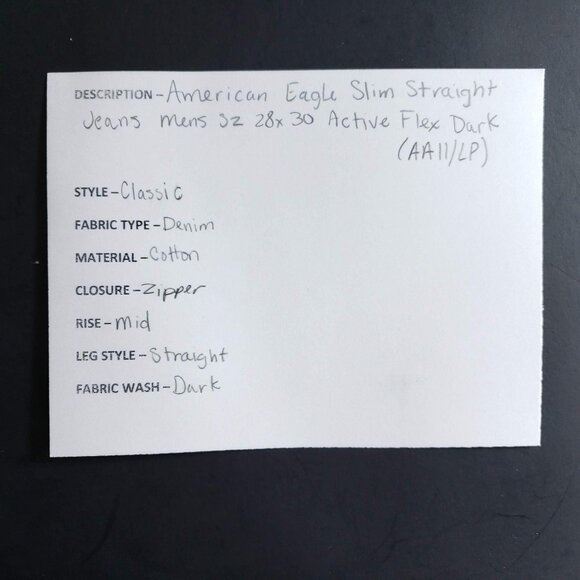 DESCRIPTION - American Eagle Slim Straight
Jeans mens sz 28x30 Active Flex Dark
(AA11/LP)
STYLE - Classic
FABRIC TYPE - Denim
MATERIAL - Cotton
CLOSURE - Zipper
RISE - mid
LEG STYLE - Straight
FABRIC WASH - Dark